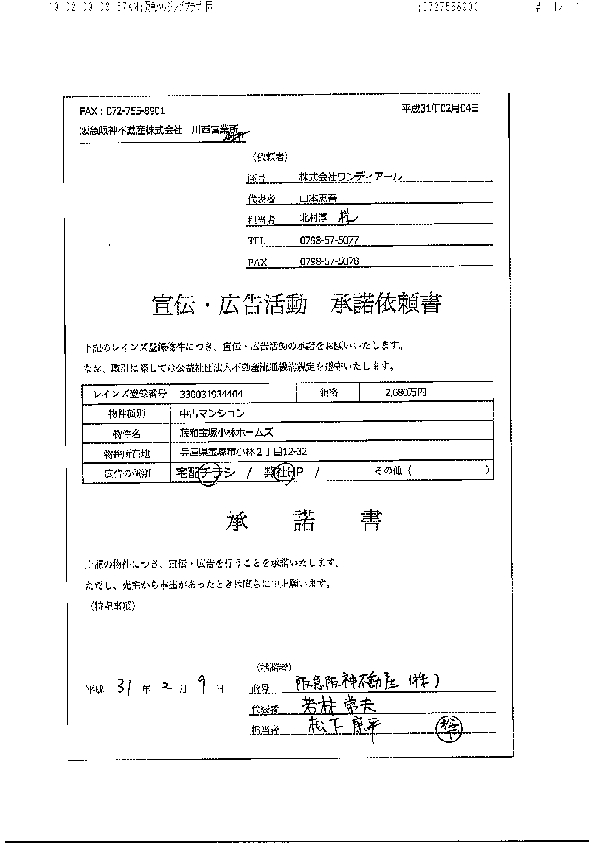 FAX：072-755-8901
平成31年02月04日
阪急阪神不動産株式会社　川西営業所
（依頼者）
商号　株式会社ワンディアール
代表者　山本恵吾
担当者　北村淳
TEL　0798-57-5077
FAX　0798-57-5078
宣伝・広告活動　承諾依頼書
下記のレインズ登録物件につき、宣伝・広告活動の承諾をお願いいたします。
なお、取引に際しては公益社団法人不動産流通機構規定を遵守いたします。
レインズ登録番号　330031934404　価格　2,680万円
物件種別　中古マンション
物件名　宝塚小林ホームズ
物件所在地　兵庫県宝塚市小林２丁目12-32
広告の種別　宅配チラシ　/　弊社HP　/　その他（　　　）
承　諾　書
上記の物件につき、宣伝・広告を行うことを承諾いたします。
ただし、売主から申出があったときは
（特記事項）
（承諾者）
平成　31　年　2　月　9　日
商号　阪急阪神不動産（株）
代表者　若林常夫
担当者　松下康平　松下